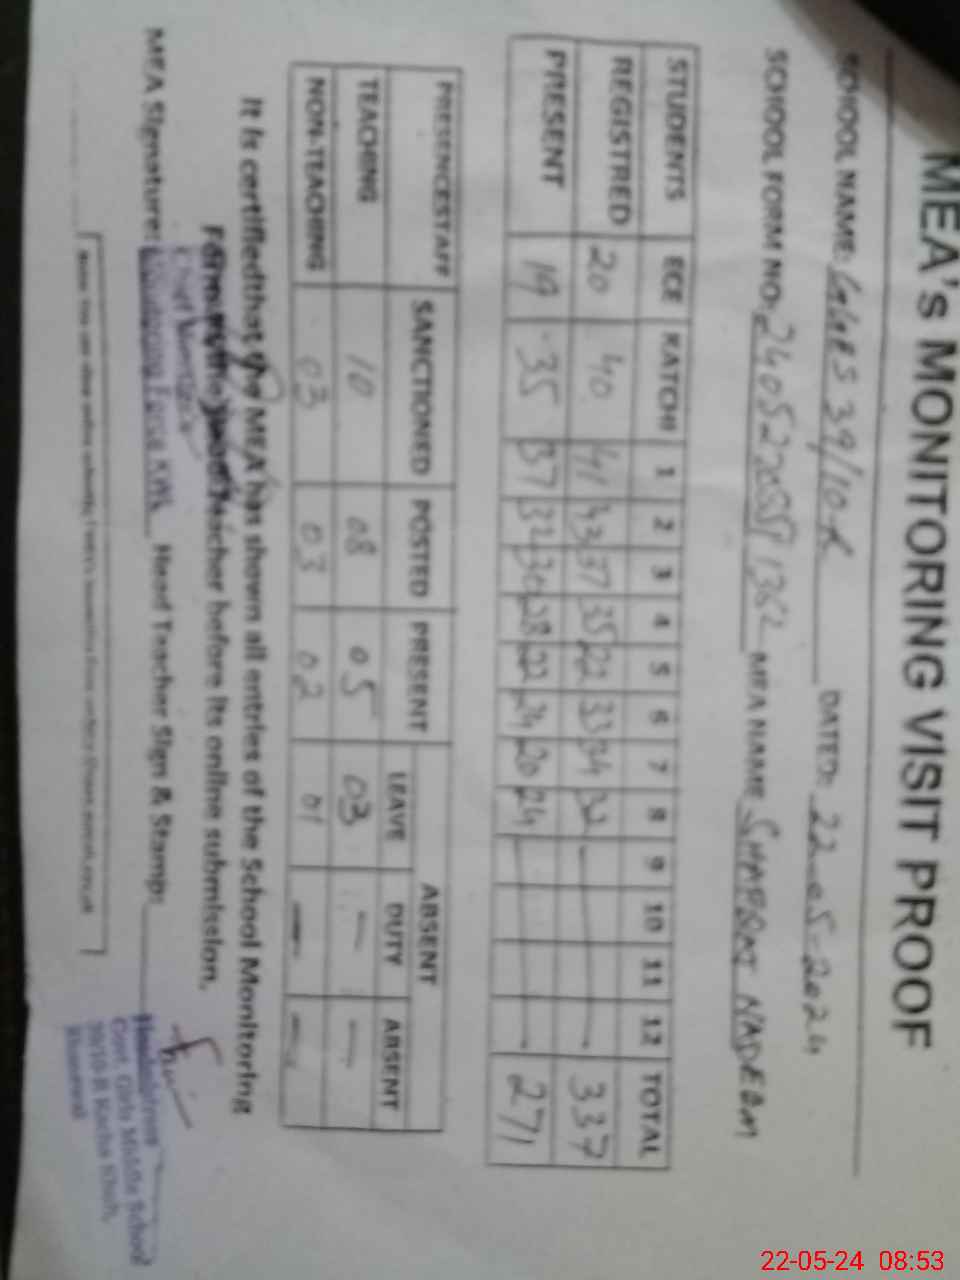 MEA's MONITORING VISIT PROOF
SCHOOL NAME: GGES 39/10-R DATED: 22-05-2024
SCHOOL FORM NO: MEA NAME NADEEM
STUDENTS ECE KATCHI 1 2 3 4 5 6 7 8 9 10 11 12 TOTAL
REGISTRED 20 40 41 43 37 35 22 33 34 32 337
PRESENT 19 35 37 32 30 28 22 24 20 24 271
PRESENCESTAFF SANCTIONED POSTED PRESENT ABSENT
LEAVE DUTY ABSENT
TEACHING 10 08 05 03 — —
NON-TEACHING 03 03 02 01 — —
It is certifiedthat the MEA has shown all entries of the School Monitoring
Form to the Head Teacher before its online submission.
MEA Signature: Head Teacher Sign & Stamp:
Headmistress
Govt. Girls Middle School
39/10-R Kacha Khuh,
Khanewal
22-05-24 08:53